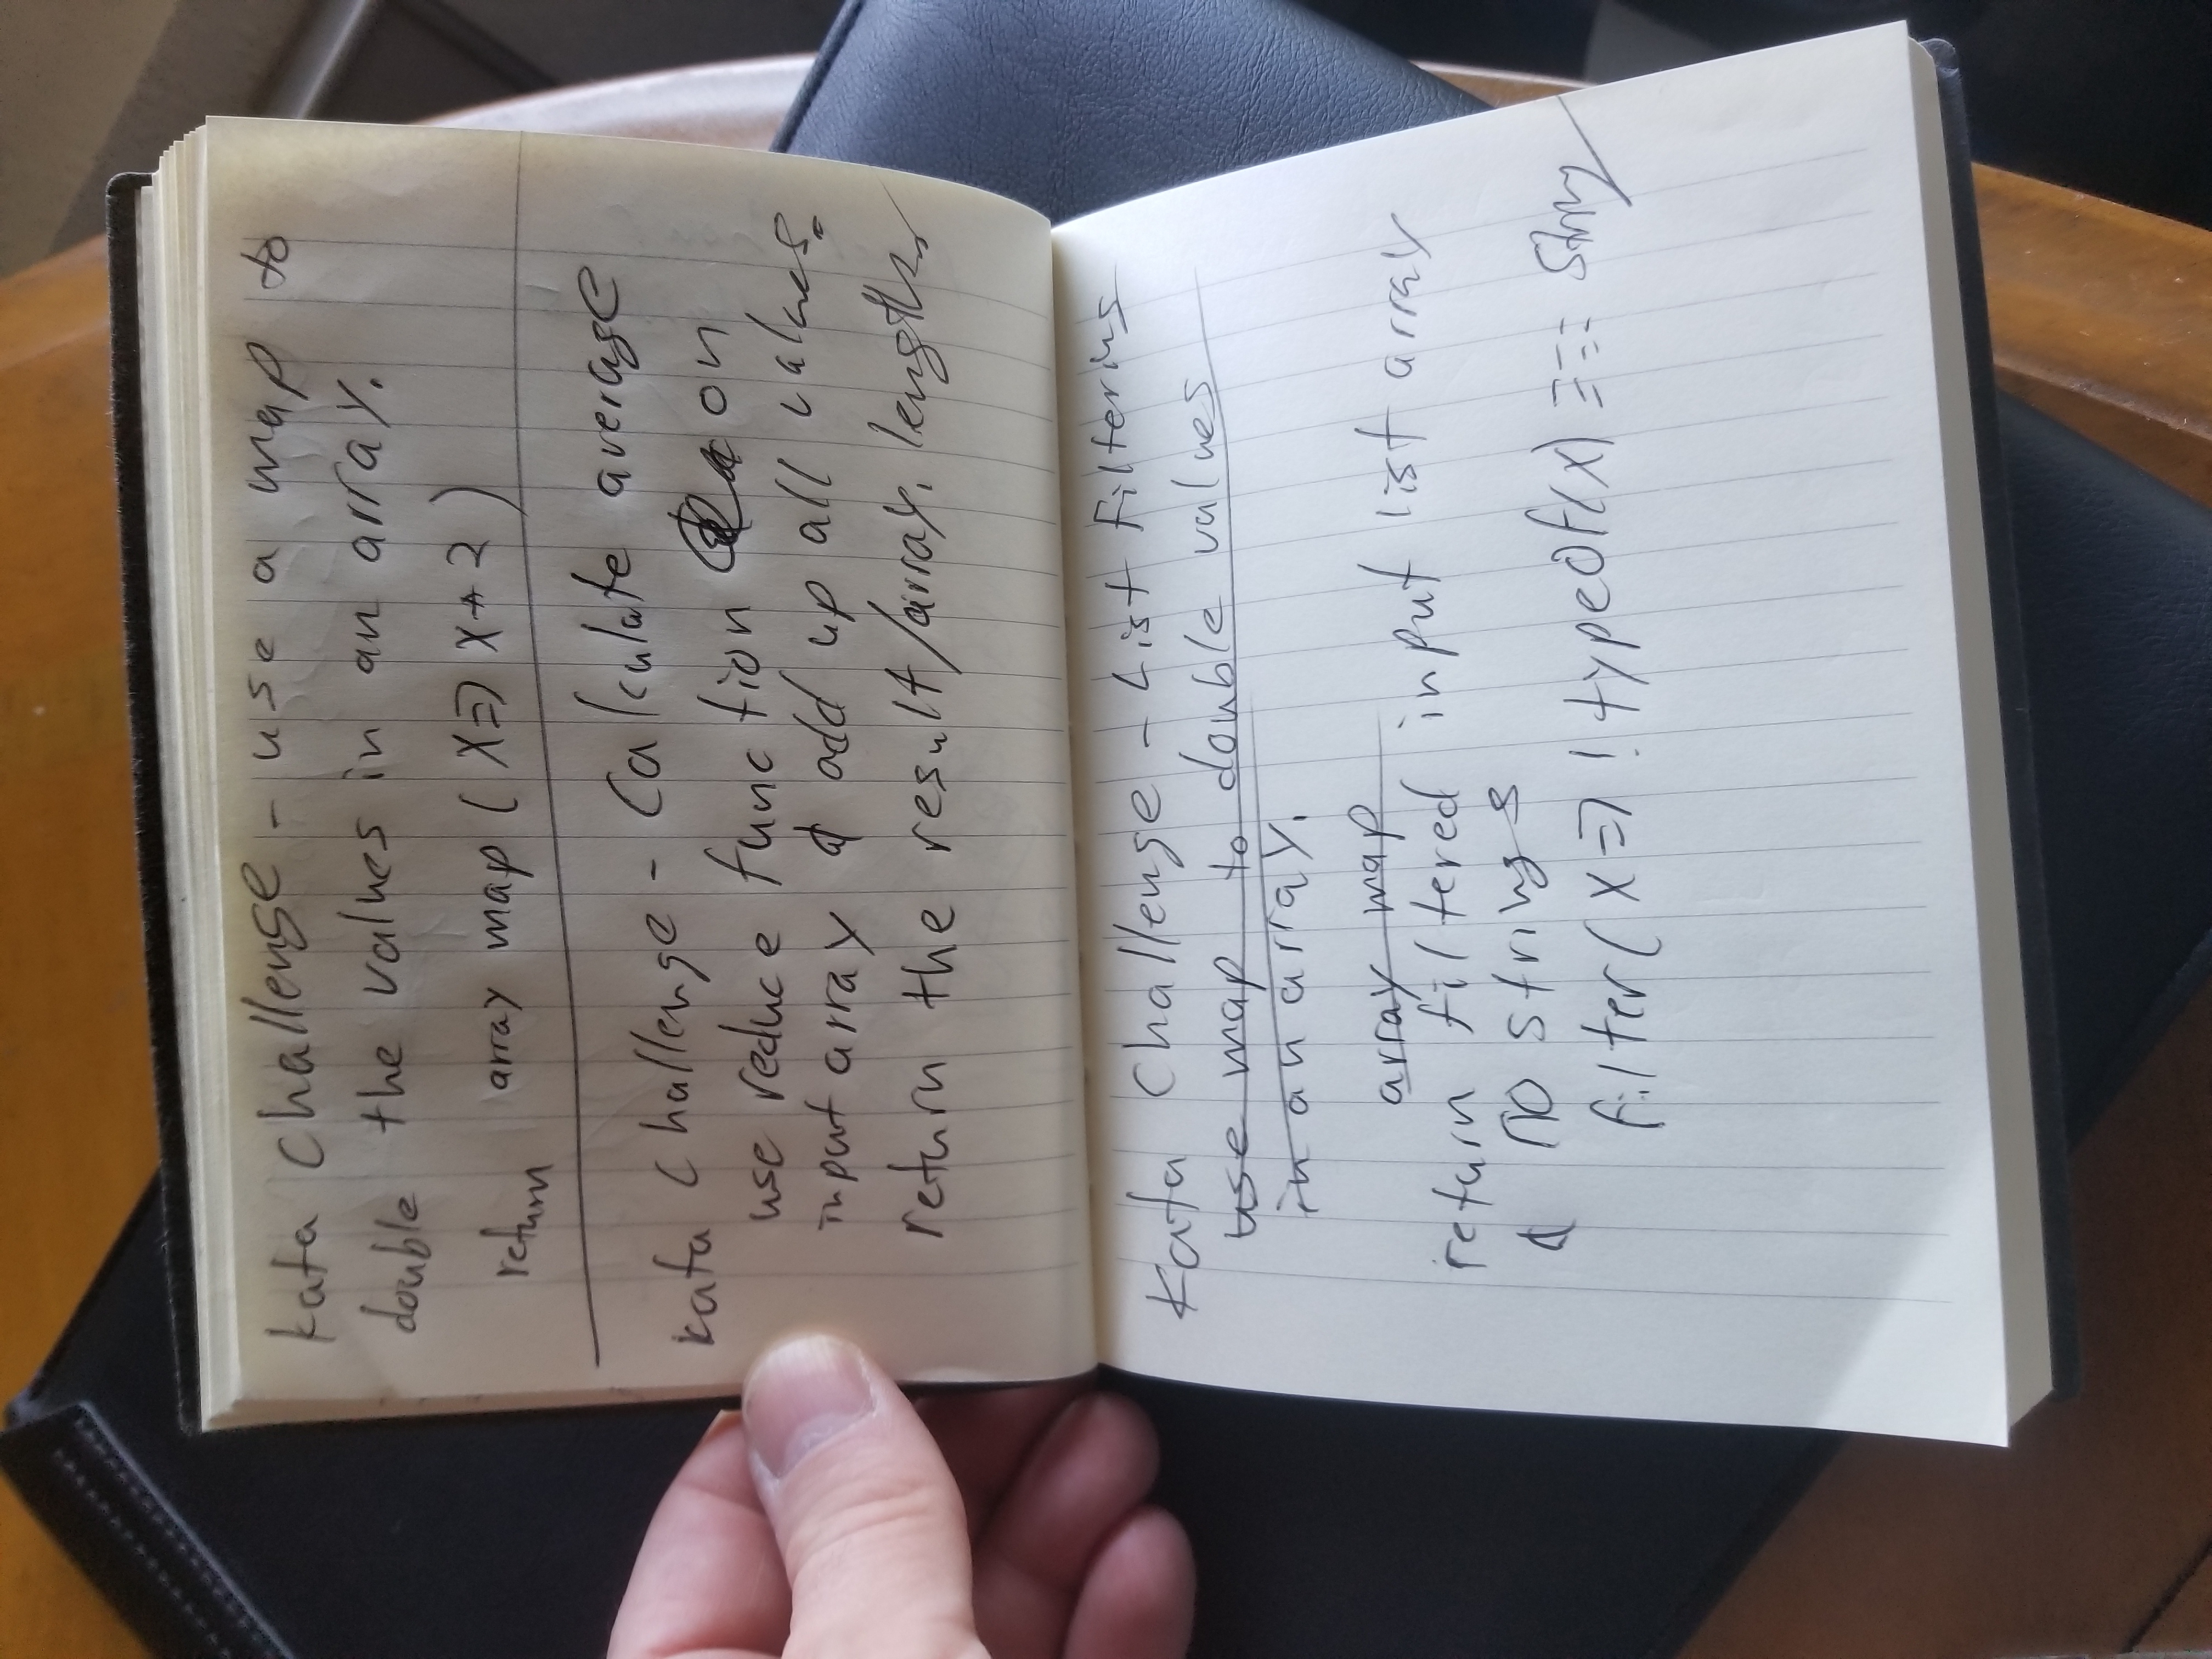 kata challenge - use a map to
double the values in an array.
return array map (x => x * 2)
kata challenge - Calculate average
use reduce function on
input array & add up all values.
return the result/array.length
Kata Challenge - List Filtering
use map to double values
in an array.
array map
return filtered input list array
& no strings
filter(x => ! typeof(x) === String